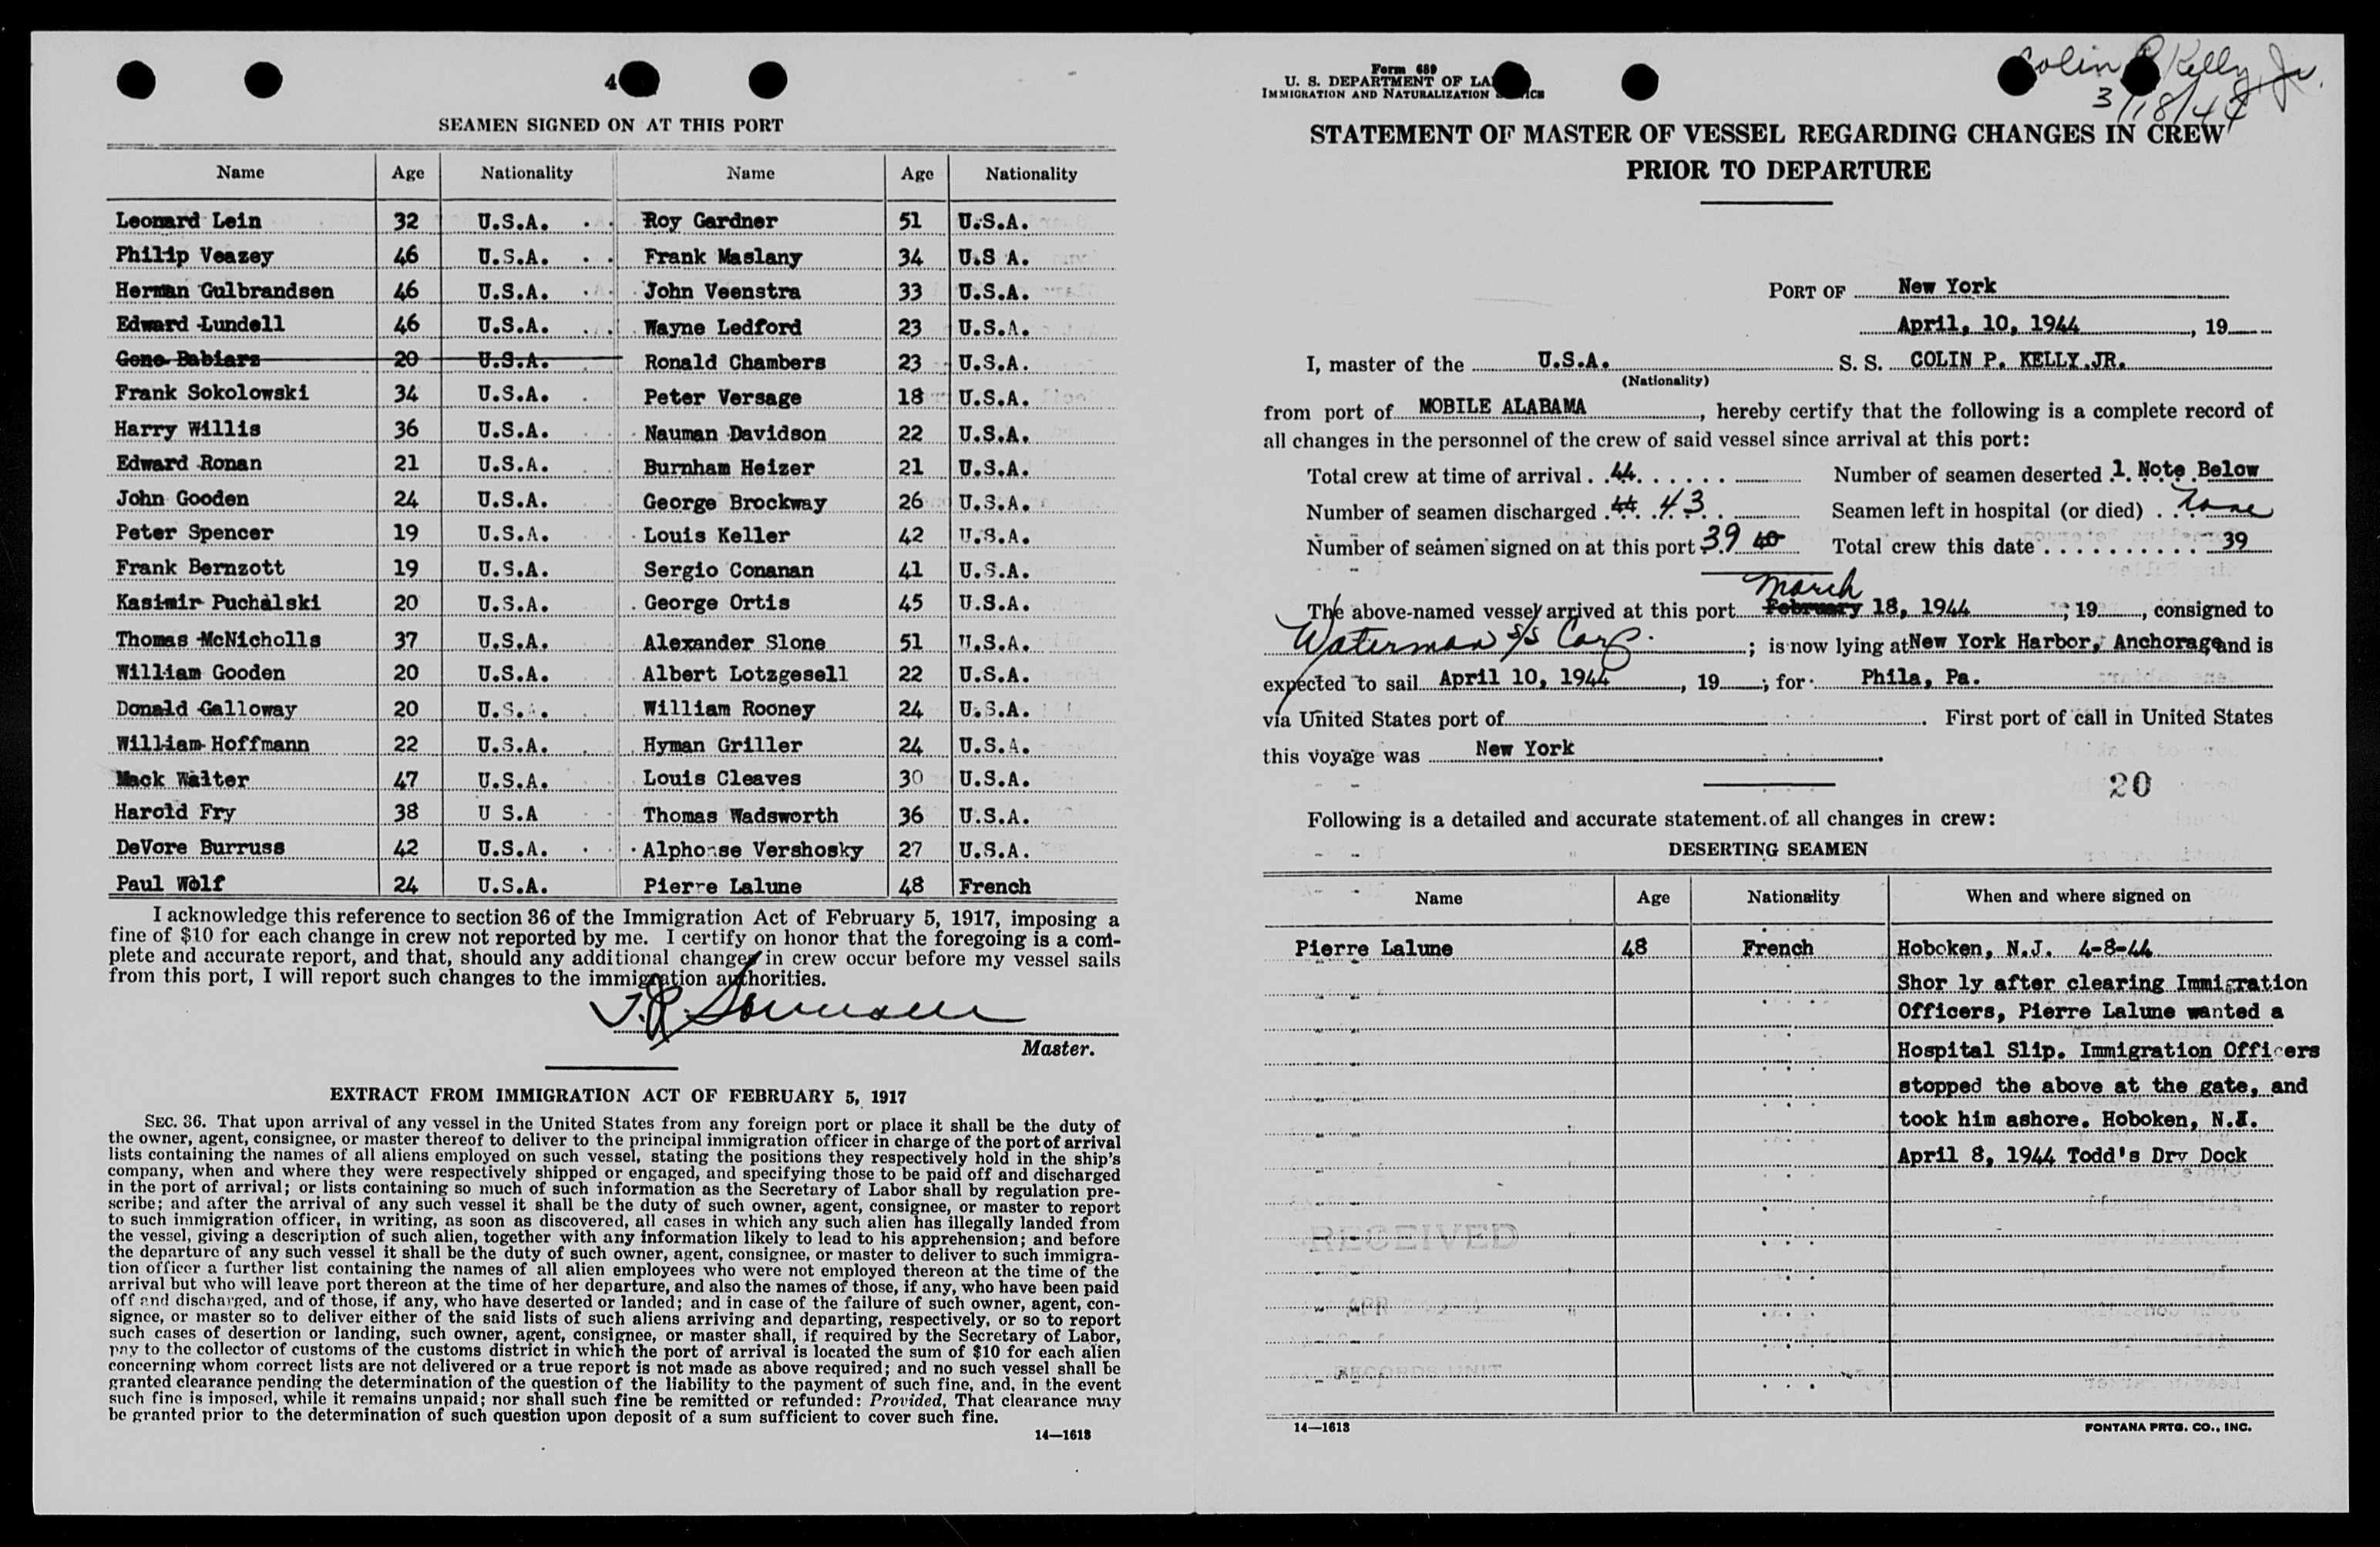 4
SEAMEN SIGNED ON AT THIS PORT
Name Age Nationality Name Age Nationality
Leonard Lein 32 U.S.A. Roy Gardner 51 U.S.A.
Philip Veazey 46 U.S.A. Frank Maslany 34 U.S A.
Herman Gulbrandsen 46 U.S.A. John Veenstra 33 U.S.A.
Edward Lundell 46 U.S.A. Wayne Ledford 23 U.S.A.
Gene Babiarz 20 U.S.A. Ronald Chambers 23 U.S.A.
Frank Sokolowski 34 U.S.A. Peter Versage 18 U.S.A.
Harry Willis 36 U.S.A. Nauman Davidson 22 U.S.A.
Edward Ronan 21 U.S.A. Burnham Heizer 21 U.S.A.
John Gooden 24 U.S.A. George Brockway 26 U.S.A.
Peter Spencer 19 U.S.A. Louis Keller 42 U.S.A.
Frank Bernzott 19 U.S.A. Sergio Conanan 41 U.S.A.
Kasimir Puchalski 20 U.S.A. George Ortis 45 U.S.A.
Thomas McNicholls 37 U.S.A. Alexander Slone 51 U.S.A.
William Gooden 20 U.S.A. Albert Lotzgesell 22 U.S.A.
Donald Galloway 20 U.S.A. William Rooney 24 U.S.A.
William Hoffmann 22 U.S.A. Hyman Griller 24 U.S.A.
Mack Walter 47 U.S.A. Louis Cleaves 30 U.S.A.
Harold Fry 38 U S.A Thomas Wadsworth 36 U.S.A.
DeVore Burruss 42 U.S.A. Alphonse Vershosky 27 U.S.A.
Paul Wolf 24 U.S.A. Pierre Lalune 48 French
I acknowledge this reference to section 36 of the Immigration Act of February 5, 1917, imposing a
fine of $10 for each change in crew not reported by me. I certify on honor that the foregoing is a com-
plete and accurate report, and that, should any additional changes in crew occur before my vessel sails
from this port, I will report such changes to the immigration authorities.
Master.
EXTRACT FROM IMMIGRATION ACT OF FEBRUARY 5, 1917
SEC. 36. That upon arrival of any vessel in the United States from any foreign port or place it shall be the duty of
the owner, agent, consignee, or master thereof to deliver to the principal immigration officer in charge of the port of arrival
lists containing the names of all aliens employed on such vessel, stating the positions they respectively hold in the ship's
company, when and where they were respectively shipped or engaged, and specifying those to be paid off and discharged
in the port of arrival; or lists containing so much of such information as the Secretary of Labor shall by regulation pre-
scribe; and after the arrival of any such vessel it shall be the duty of such owner, agent, consignee, or master to report
to such immigration officer, in writing, as soon as discovered, all cases in which any such alien has illegally landed from
the vessel, giving a description of such alien, together with any information likely to lead to his apprehension; and before
the departure of any such vessel it shall be the duty of such owner, agent, consignee, or master to deliver to such immigra-
tion officer a further list containing the names of all alien employees who were not employed thereon at the time of the
arrival but who will leave port thereon at the time of her departure, and also the names of those, if any, who have been paid
off and discharged, and of those, if any, who have deserted or landed; and in case of the failure of such owner, agent, con-
signee, or master so to deliver either of the said lists of such aliens arriving and departing, respectively, or so to report
such cases of desertion or landing, such owner, agent, consignee, or master shall, if required by the Secretary of Labor,
pay to the collector of customs of the customs district in which the port of arrival is located the sum of $10 for each alien
concerning whom correct lists are not delivered or a true report is not made as above required; and no such vessel shall be
granted clearance pending the determination of the question of the liability to the payment of such fine, and, in the event
such fine is imposed, while it remains unpaid; nor shall such fine be remitted or refunded: Provided, That clearance may
be granted prior to the determination of such question upon deposit of a sum sufficient to cover such fine.
14—1613
Form 689
U. S. DEPARTMENT OF LA
IMMIGRATION AND NATURALIZATION
Colin P Kelly, Jr.
3/18/44
STATEMENT OF MASTER OF VESSEL REGARDING CHANGES IN CREW
PRIOR TO DEPARTURE
PORT OF New York
April, 10, 1944, 19
I, master of the U.S.A. S. S. COLIN P. KELLY.JR.
(Nationality)
from port of MOBILE ALABAMA, hereby certify that the following is a complete record of
all changes in the personnel of the crew of said vessel since arrival at this port:
Total crew at time of arrival 44 Number of seamen deserted 1 Note Below
Number of seamen discharged 44 43 Seamen left in hospital (or died) None
Number of seamen signed on at this port 39 40 Total crew this date 39
March
The above-named vessel arrived at this port February 18, 1944; 19, consigned to
Waterman S/S Corp. ; is now lying at New York Harbor, Anchorage and is
expected to sail April 10, 1944, 19; for Phila, Pa.
via United States port of. First port of call in United States
this voyage was New York.
20
Following is a detailed and accurate statement of all changes in crew:
DESERTING SEAMEN
Name Age Nationality When and where signed on
Pierre Lalune 48 French Hoboken, N.J. 4-8-44
Shor ly after clearing Immigration
Officers, Pierre Lalune wanted a
Hospital Slip. Immigration Officers
stopped the above at the gate, and
took him ashore. Hoboken, N.J.
April 8, 1944 Todd's Dry Dock
RECEIVED
RECORDS UNIT
14—1613
FONTANA PRTG. CO., INC.